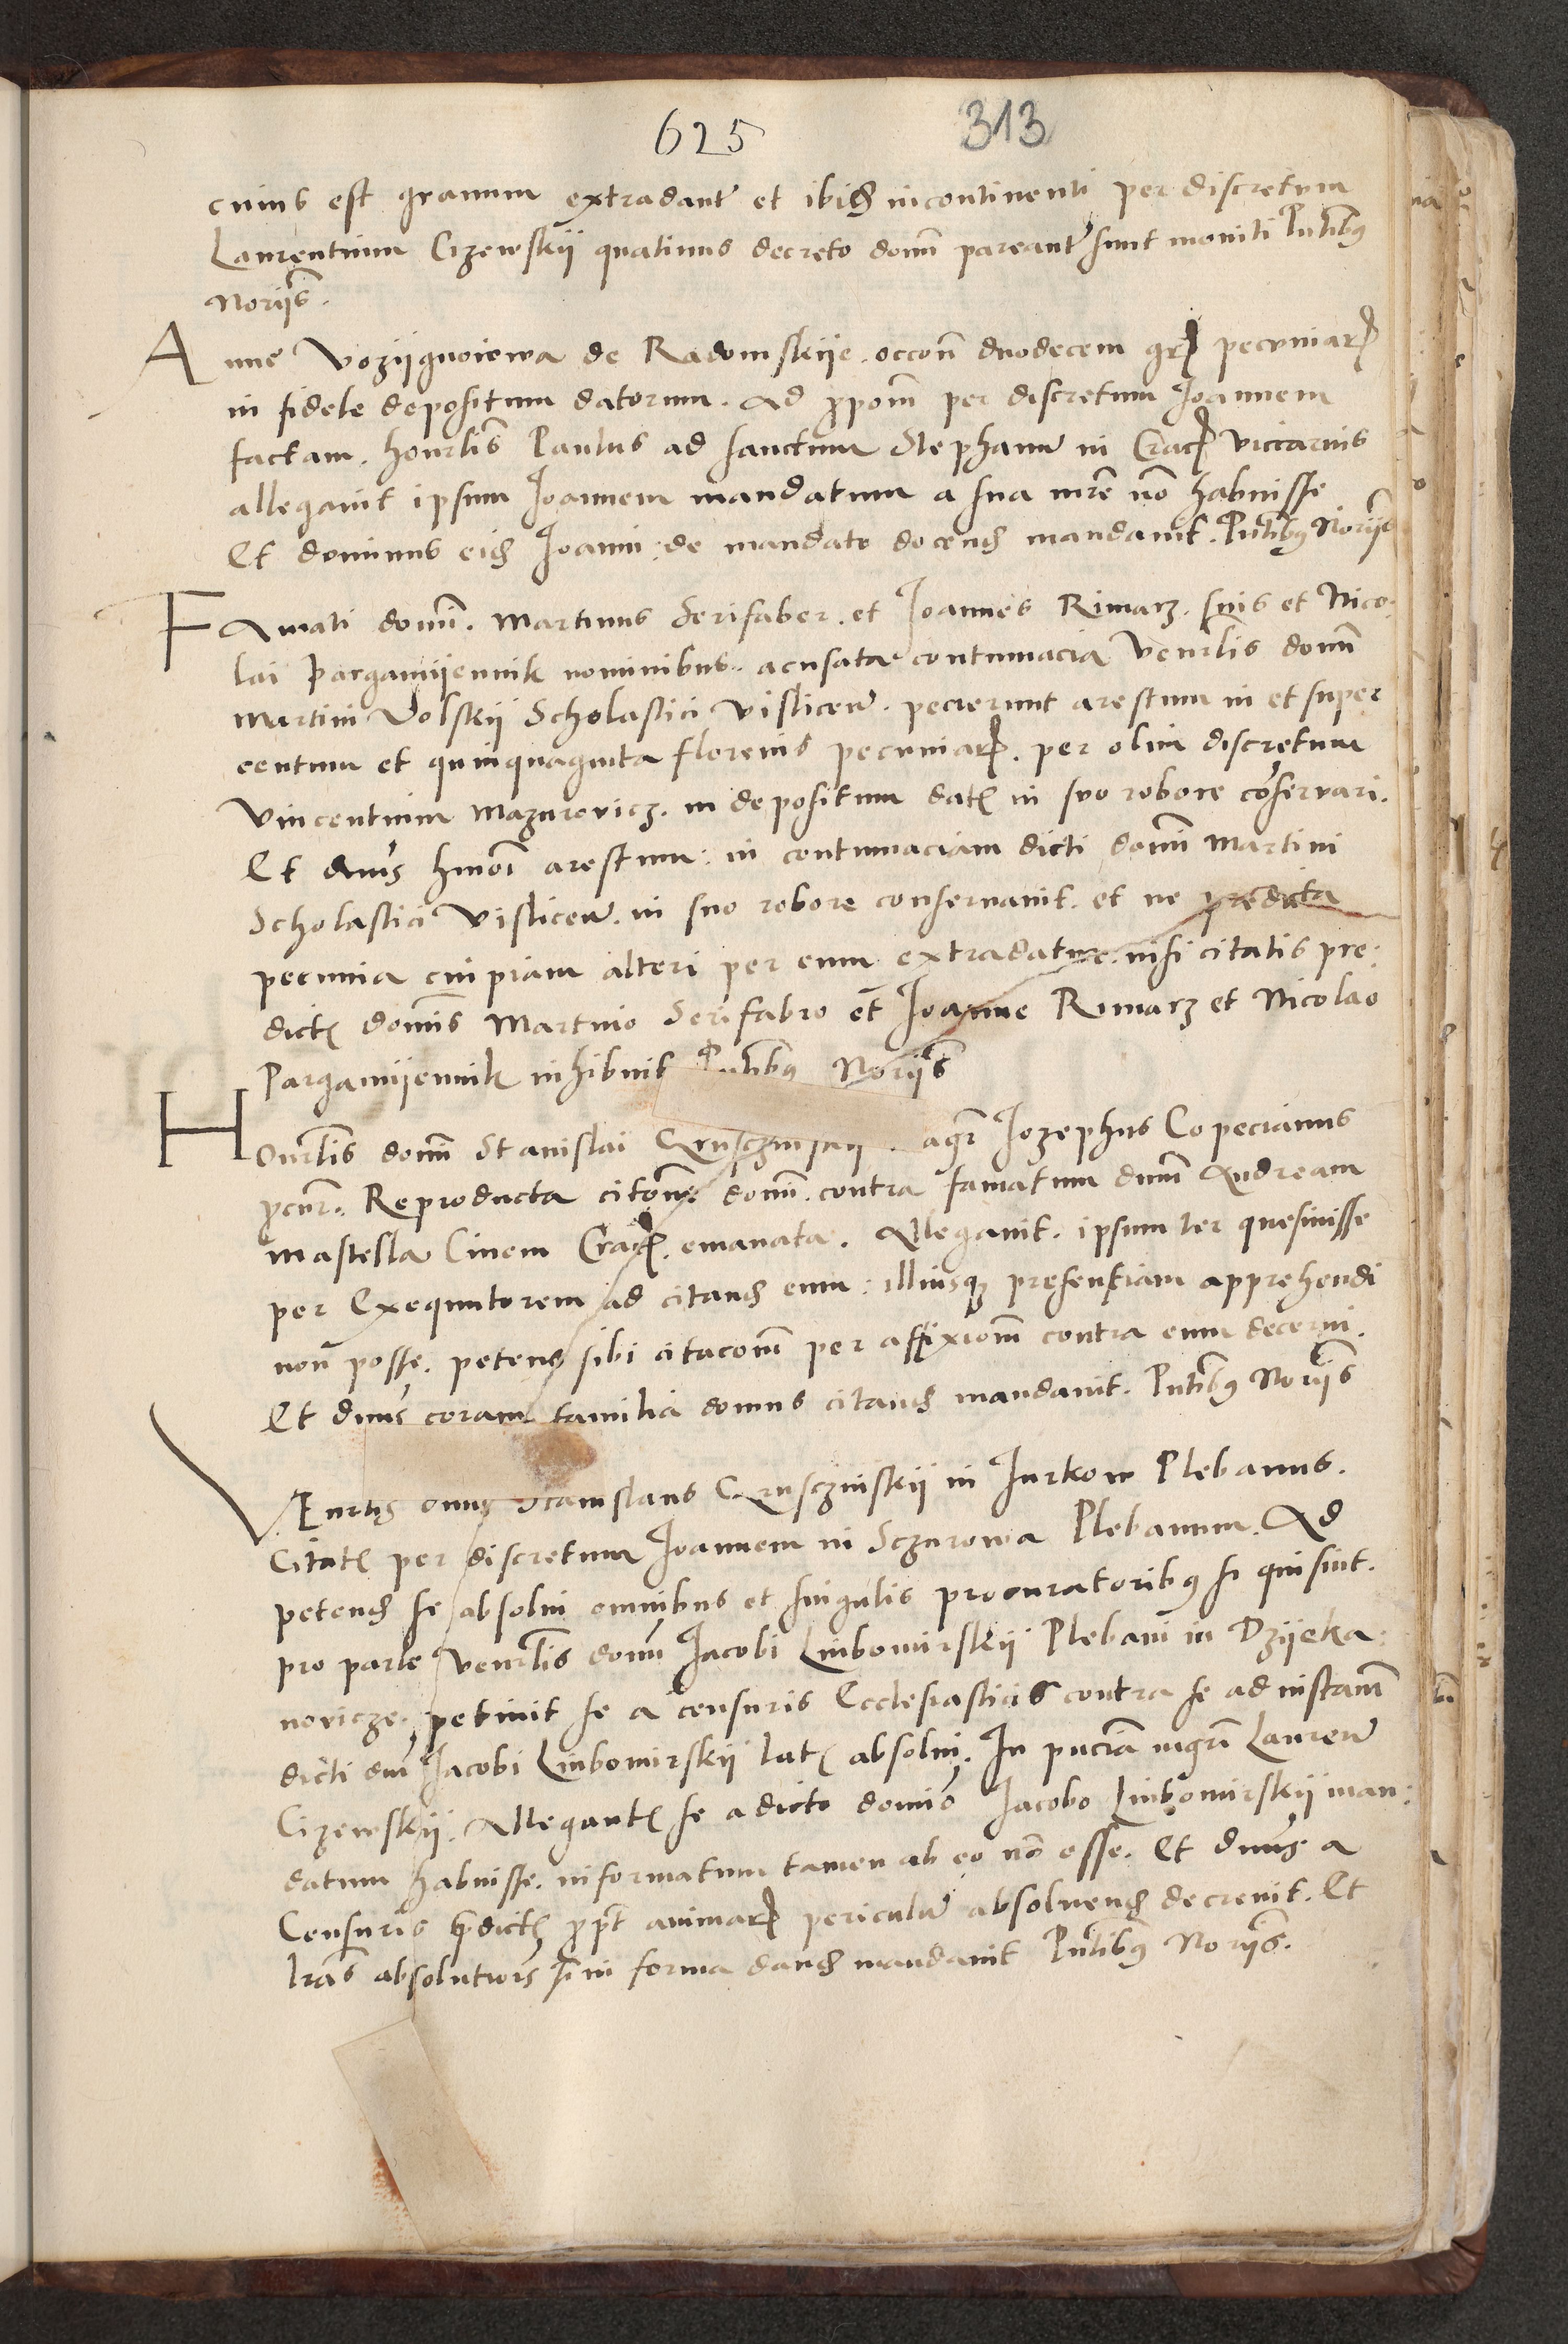 625 313
cuius est granum extradant et ibid incontinenti per discretum
Laurentium Cizewskij quatinus decreto domi pareant sunt moniti Pntibus
Norijs.
Anne Vozijgnoiewa de Radomskije. occon duodecem gr pecuniar
in fidele depositum datorum. Ad ppom per discretum Joannem
factam. honrlis Paulus ad sanctum Stephanu in Crac viccarius
allegauit ipsum Joannem mandatum a sua mre no habuisse
Et dominus eid Joanni: de mandato docend mandauit. Pntibus Norijs
Famati domi. Martinus Serifaber. et Joannes Rimarz. suis et Nico-
lai Pargamijennik nominibus. acusata contumacia Venrlis domi
Martini Volskij Scholastici Vislicen. pecierunt arestum in et super
centum et quinquaginta florenis pecuniar. per olim discretum
Vincentium Mazurevicz. in depositum dat in suo robore coservari.
Et dnus hmoi arestum: in contumaciam dicti domi Martini
Scholastici Vislicen. in suo robore conseruauit. et ne predicta
pecunia cuipiam alteri per eum extradatur. nisi citatis pre:
dict domis Martino Serifabro et Joanne Rimarz et Nicolao
Pargamijennik inhibuit Pntibus Norijs
Honrlis domi Stanislai agr Jozephus Copecianus
pcur. Reproducta citone domi. contra famatum dnum Andream
Mastella Ciuem Crac. emanata. Allegauit. ipsum ter quesiuisse
per Exequutorem ad citand eum: illiusque presentiam apprehendi
non posse. petens sibi citacom per affixiom contra eum decerni.
Et dnus coram familia domus citand mandauit. Pntibus Norijs
VEnrlis dnus Stanislaus Gruscziniskij in Jurkow Plebanus.
Citat per discretum Joannem in Sczurowa Plebanum. Ad
petend se absolui omnibus et singulis procuratoribus si qui sint.
pro parte Venrlis domi Jacobi Liubomirskij Plebani in Dzijeka:
novicze. petiuit se a censuris Ecclesiasticis contra se ad instam
dicti dni Jacobi Liubomirskij lat absolui. In pncia mgri Lauren
Cizewskij. Allegant se a dicto domio Jacobo Liubomirskij man:
datum habuisse. informatum tamen ab eo no esse. Et dnus a
Censuris pdict ppt animar periculu absoluend decreuit. Et
lras absolutiois in forma dand mandauit Pntibus Norijs.